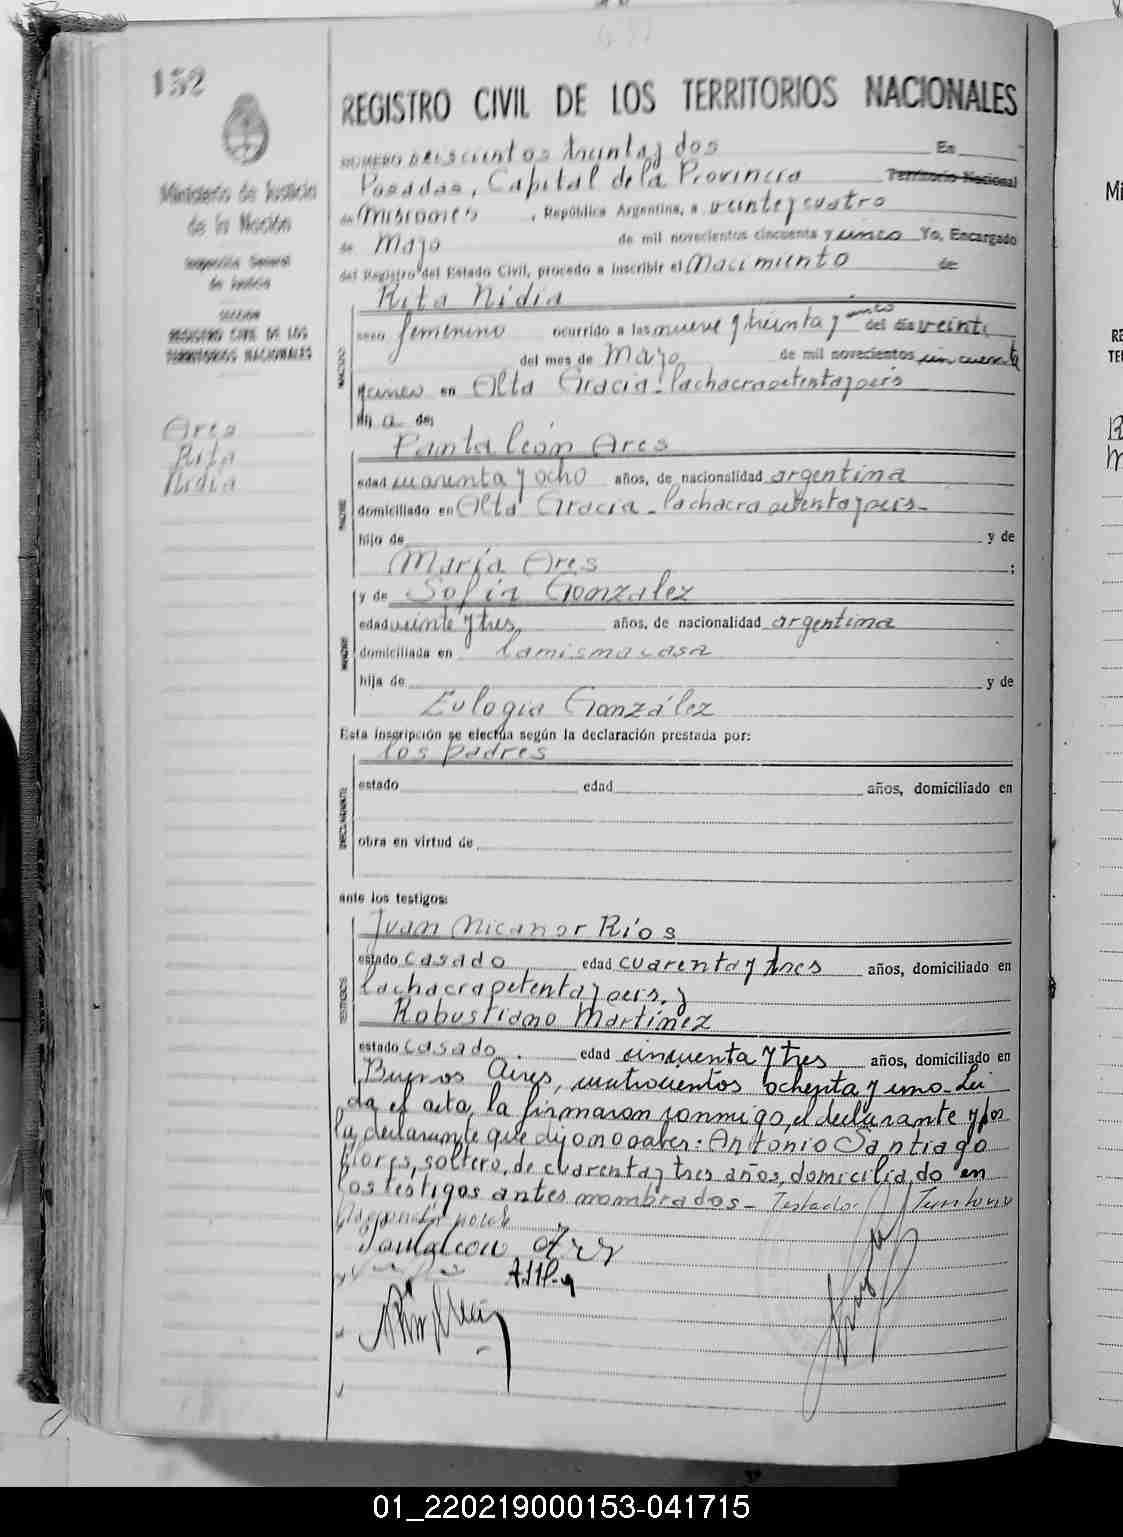 152
REGISTRO CIVIL DE LOS TERRITORIOS NACIONALES
Ministerio de Justicia
de la Nación
Inspección General
de Justicia
SECCION
REGISTRO CIVIL DE LOS
TERRITORIOS NACIONALES
Ares
Rita
Nidia
NUMERO seiscientos treinta y dos En
Posadas, Capital de la Provincia Territorio Nacional
de Misiones, República Argentina, a veinte y cuatro
de Mayo de mil novecientos cincuenta y cinco Yo, Encargado
del Registro del Estado Civil, procedo a inscribir el Nacimiento de
Rita Nidia
sexo femenino ocurrido a las nueve y treinta y cinco del día veinte
del mes de Mayo de mil novecientos cincuenta
y cinco en Alta Gracia - la chacra setenta y seis
hija de:
Pantaleón Ares
edad cuarenta y ocho años, de nacionalidad argentina
domiciliado en Alta Gracia - la chacra setenta y seis -
hijo de y de
María Ares ;
y de Sofía González
edad veinte y tres, años, de nacionalidad argentina
domiciliada en la misma casa
hija de y de
Eulogia González
Esta inscripción se efectúa según la declaración prestada por:
los padres
estado edad años, domiciliado en
obra en virtud de
ante los testigos:
Juan Nicanor Ríos
estado casado edad cuarenta y tres años, domiciliado en
la chacra setenta y seis, y
Robustiano Martínez
estado casado. edad cincuenta y tres años, domiciliado en
Buenos Aires, cuatrocientos ochenta y uno - Leí
da el acta, la firmaron conmigo, el declarante y por
la declarante que dijo no saber: Antonio Santiago
Flores, soltero, de cuarenta y tres años, domiciliado en
los testigos antes nombrados - Testado: Territorio
Pantaleon Ares
01_220219000153-041715